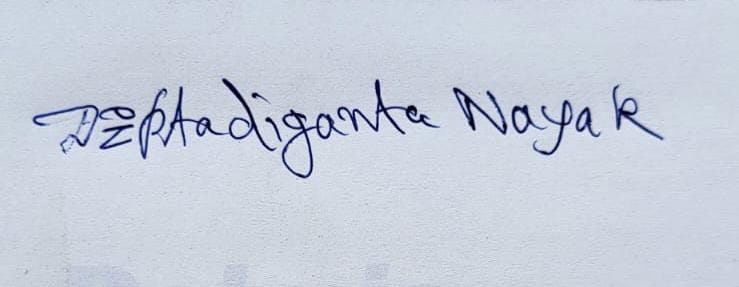 Diptadiganta Nayak